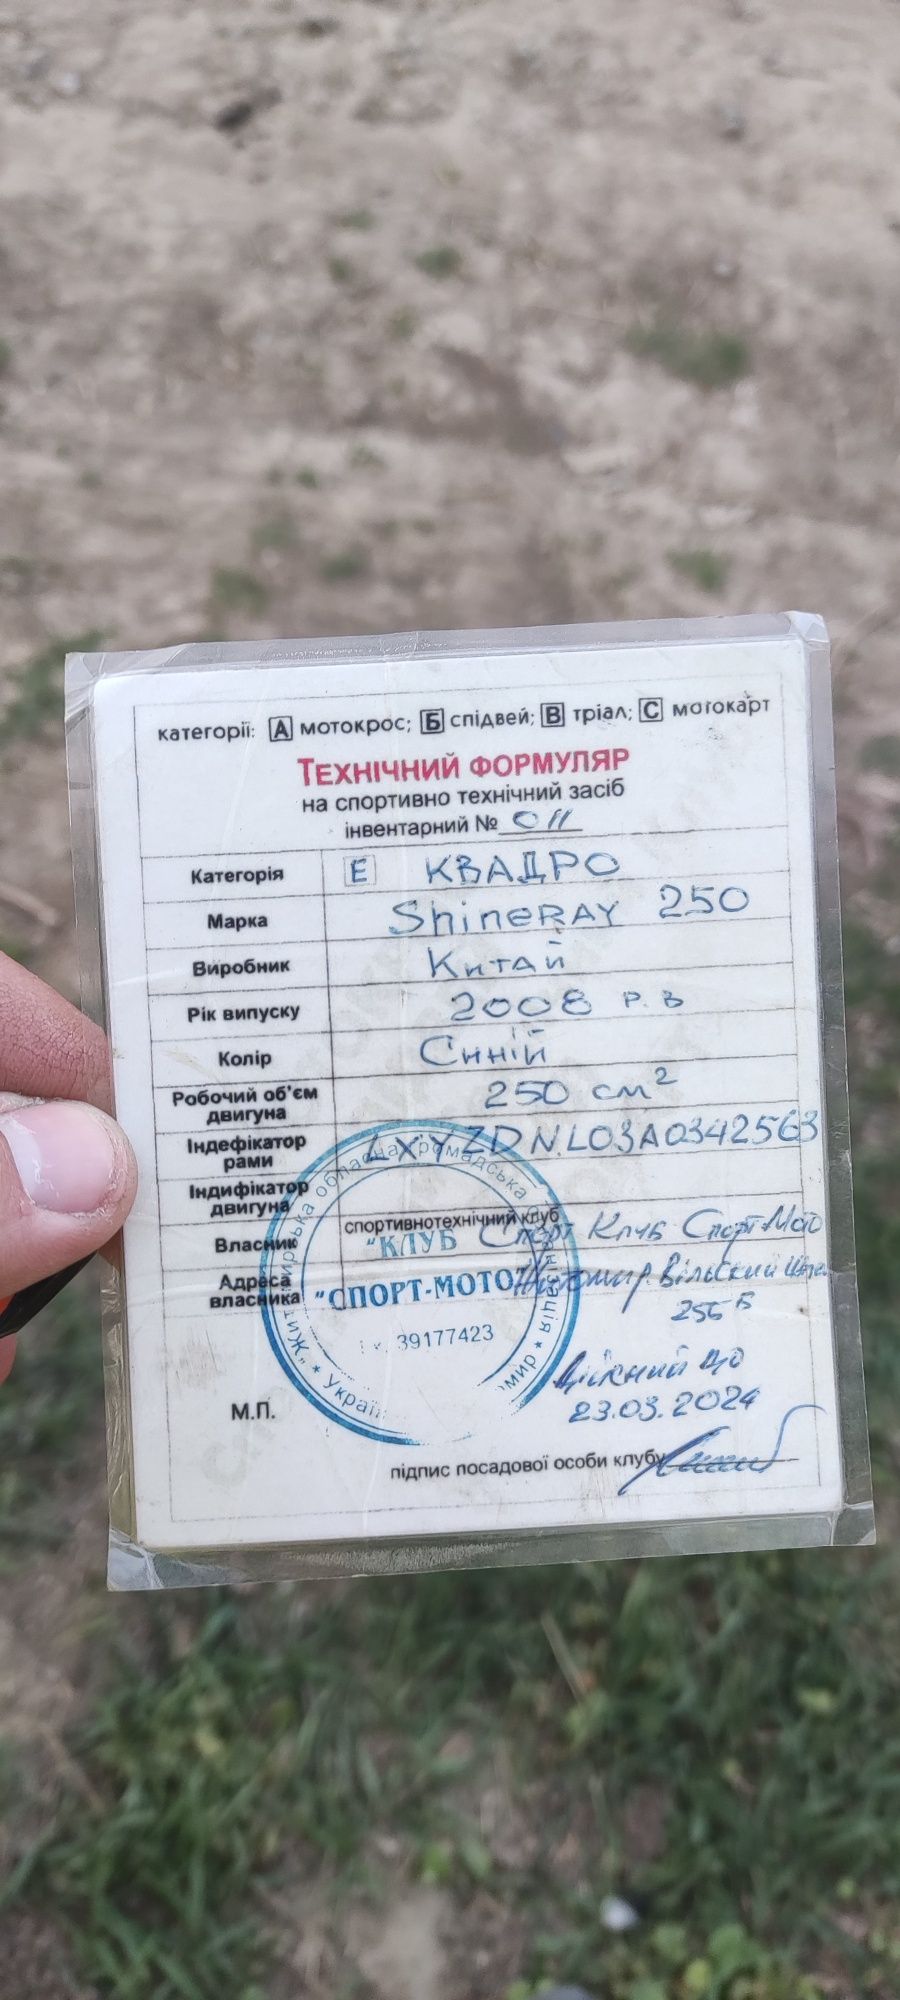 категорії: А мотокрос; Б спідвей; В тріал; С мотокарт
ТЕХНІЧНИЙ ФОРМУЛЯР
на спортивно технічний засіб
інвентарний № 011
Категорія Е КВАДРО
Марка ShineRAY 250
Виробник Китай
Рік випуску 2008 р.в
Колір Синій
Робочий об'єм двигуна 250 см²
Індефікатор рами LXYZDNL03A0342563
Индифікатор двигуна
Власник Спорт Клуб Спорт-Мото
Адреса власника Житомир. Вільский Шлях
256 Б
спортивнотехнічний клуб
"КЛУБ
"СПОРТ-МОТО"
39177423
обласна громадська
Україн
Дійсний до
23.03.2024
М.П.
підпис посадової особи клубу